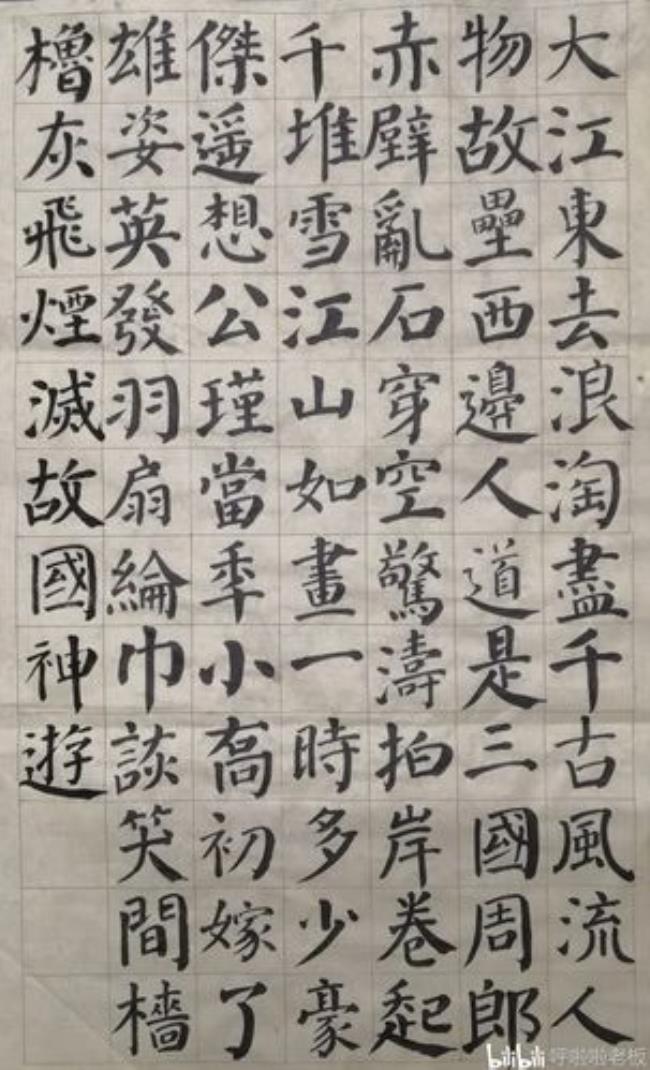 大江東去浪淘盡千古風流人
物故壘西邊人道是三國周郎
赤壁亂石穿空驚濤拍岸卷起
千堆雪江山如畫一時多少豪
傑遥想公瑾當年小喬初嫁了
雄姿英發羽扇綸巾談笑間檣
櫓灰飛煙滅故國神遊
bilibili 呼啦啦老板